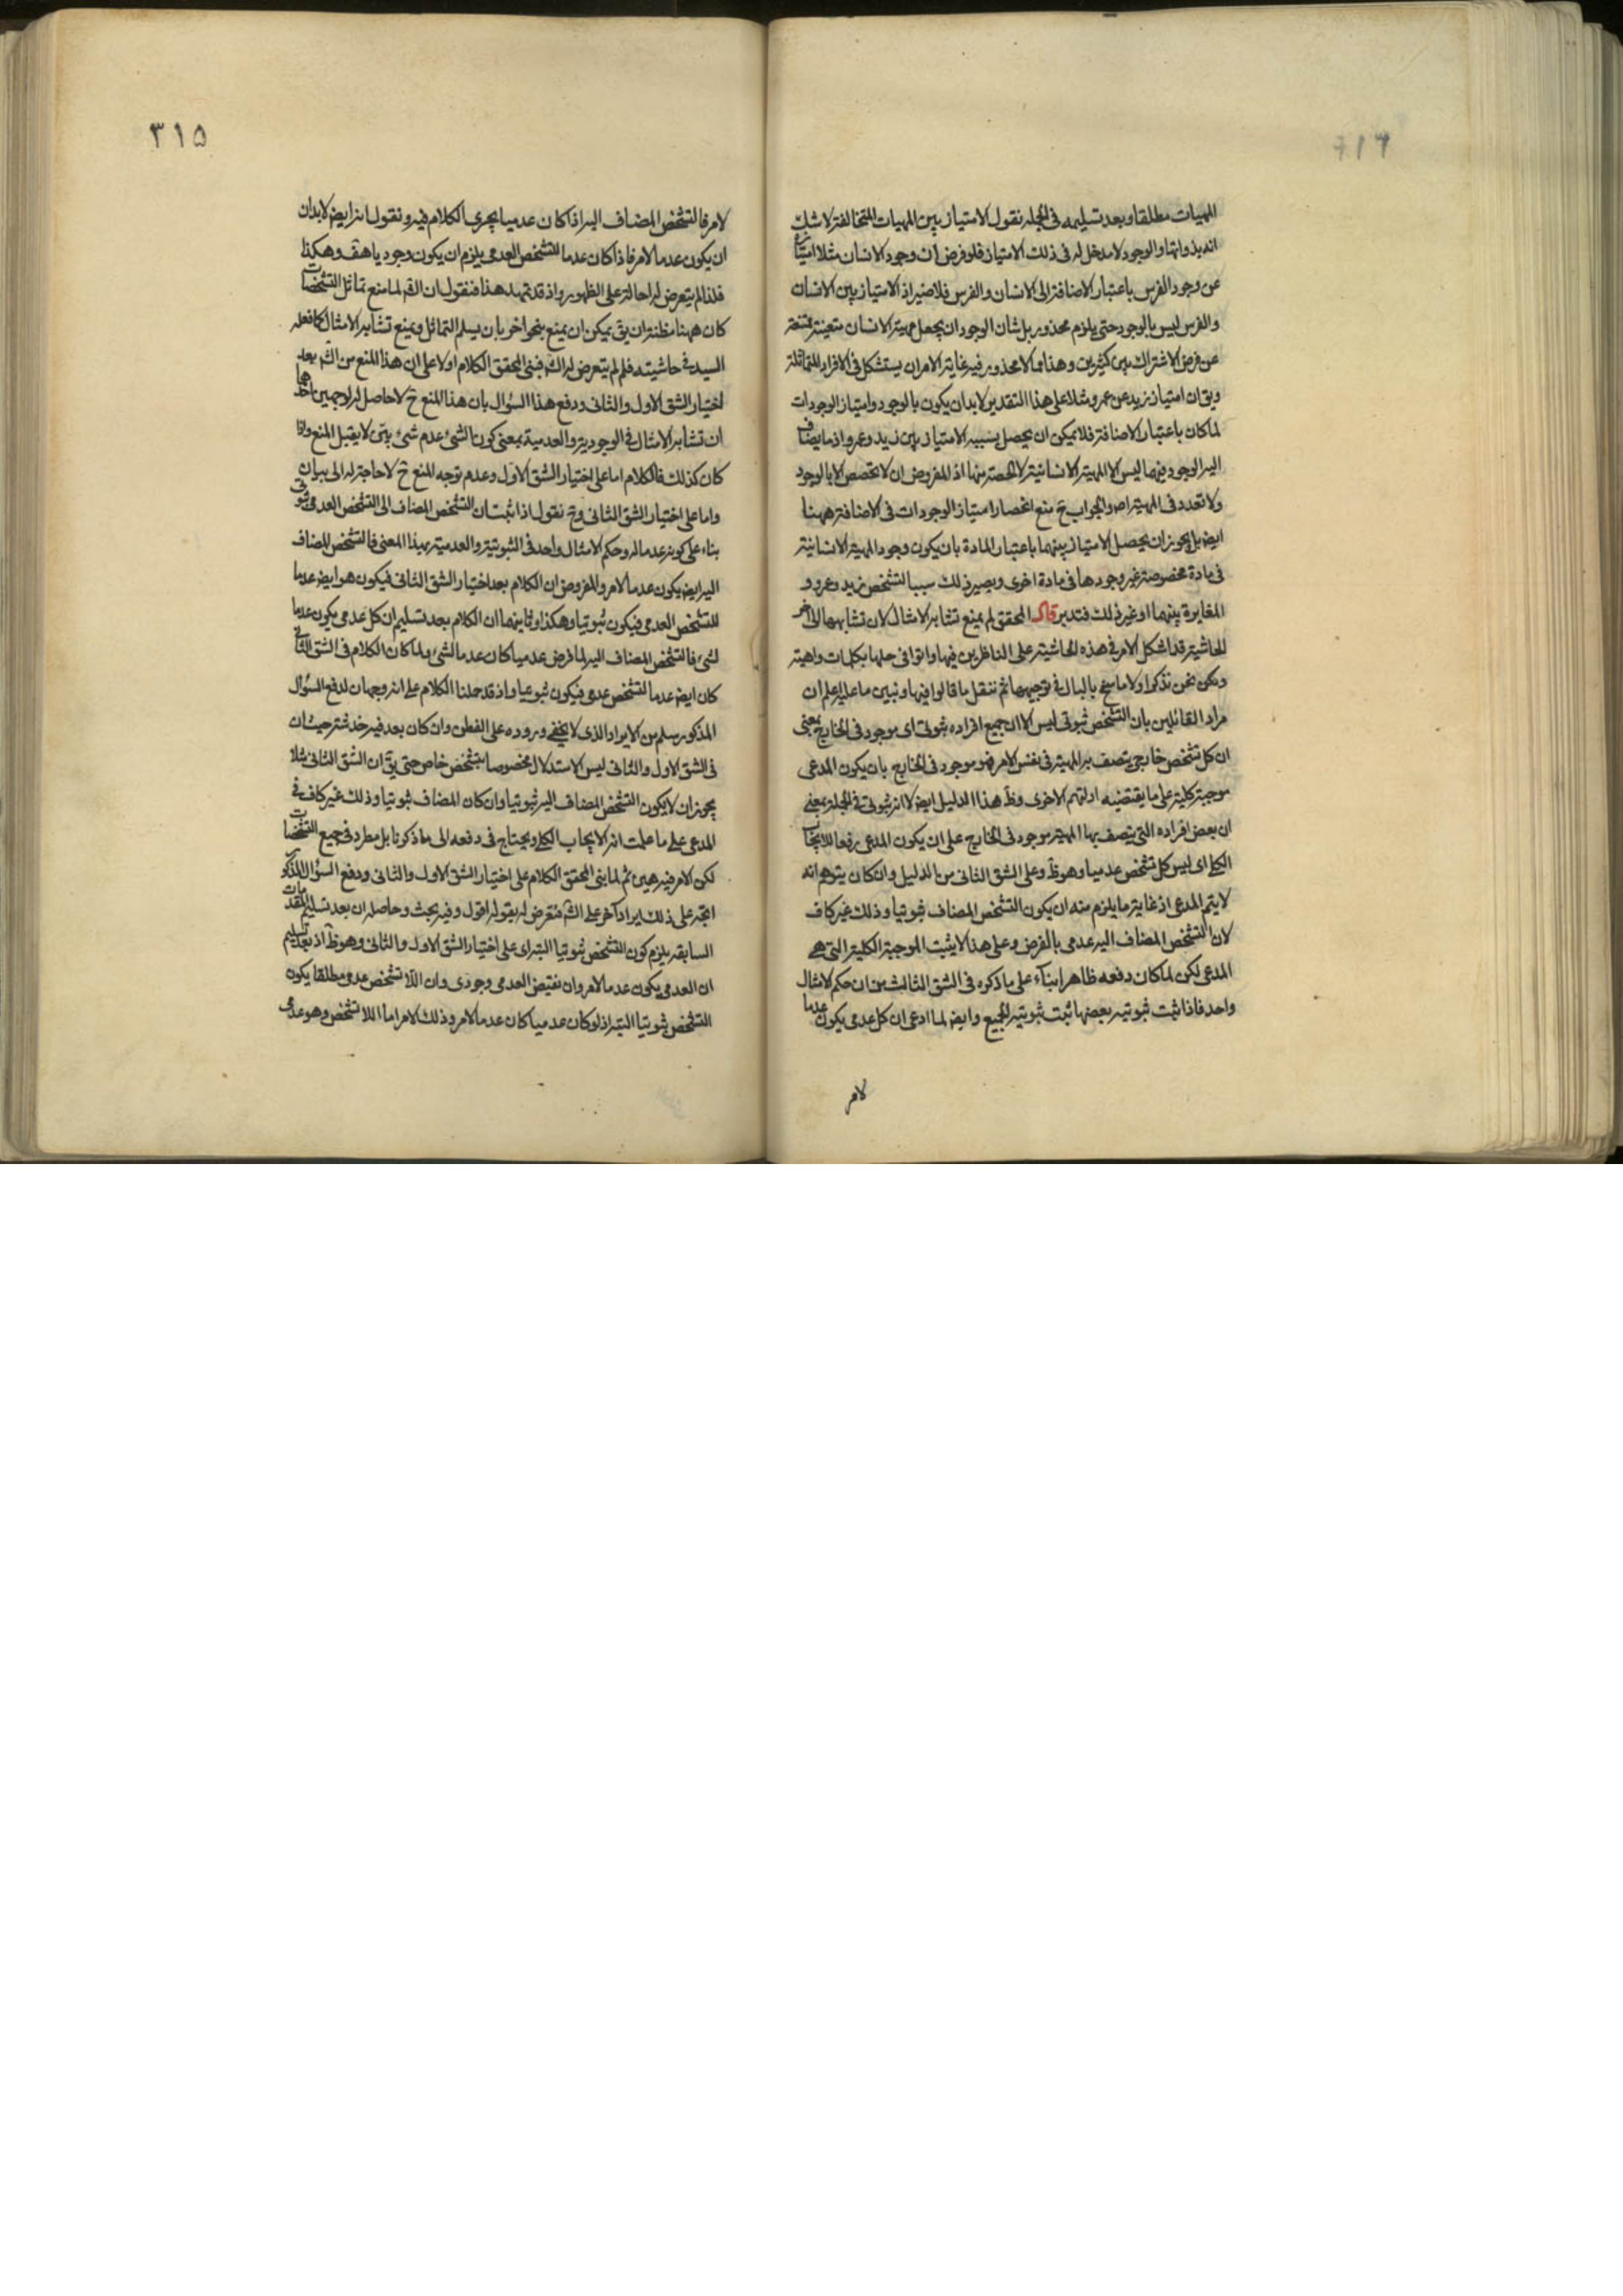 المهيات مطلقا وبعد تسليمه فى الجمله نقول الامتياز بين المهيات المتخالفة لا شك
انه بذواتها والوجود لا مدخل له فى ذلك الامتياز فلو فرض ان وجود الانسان مثلا امتيازه
عن وجود الفرس باعتبار الاضافة الى الانسان والفرس فلا ضير اذ الامتياز بين الانسان
والفرس ليس بالوجود حتى يلزم محذور بل شان الوجود ان يجعل مهية الانسان متعينة ممتنعة
عن فرض الاشتراك بين كثيرين وهذا مما لا محذور فيه غاية الامر ان يستشكل فى الافراد المتماثلة
ويق ان امتياز زيد عن عمرو مثلا على هذا التقدير لابد ان يكون بالوجود وامتياز الوجودات
لما كان باعتبار الاضافة فلا يمكن ان يحصل بسببه الامتياز بين زيد وعمرو اذ ما يضاف
اليه الوجود فيهما ليس الا المهية الانسانية لا الحصة منها اذ المفروض ان لا تحصص الا بالوجود
ولا تعدد فى المهية اصلا والجواب ح منع انحصار امتياز الوجودات فى الاضافة ههنا
ايض بل يجوز ان يحصل الامتياز بينهما باعتبار المادة بان يكون وجود المهية الانسانية
فى مادة مخصوصة غير وجودها فى مادة اخرى ويصير ذلك سببا لتشخص زيد وعمرو و
المغايرة بينهما او غير ذلك فتدبر قال المحقق لم يمنع تشابه الامثال لان تشابهها الى اخر
الحاشية قد اشكل الامر فى هذه الحاشية على الناظرين فيها واتوا فى حلها بكلمات واهية
ولكن نحن نذكر اولا ما سنح بالبال فى توجيهها ثم ننقل ما قالوا فيها ونبين ما عليه اعلم ان
مراد القائلين بان التشخص ثبوتى ليس الا ان جميع افراده ثبوتى اى موجود فى الخارج بمعنى
ان كل تشخص خارجى يتصف به المهية فى نفس الامر فهو موجود فى الخارج بان يكون المدعى
موجبة كلية على ما يقتضيه ادلتهم الاخرى وظ هذا الدليل ايض لا انه ثبوتى فى الجملة بمعنى
ان بعض افراده التى يتصف بها المهية موجود فى الخارج على ان يكون المدعى رفعا للايجاب
الكلى اى ليس كل تشخص عدميا وهو ظ وعلى الشق الثانى من الدليل وان كان يتوهم انه
لا يتم المدعى اذ غاية ما يلزم منه ان يكون التشخص المضاف ثبوتيا وذلك غير كاف
لان التشخص المضاف اليه عدمى بالفرض وعلى هذا لا يثبت الموجبة الكلية التى هى
المدعى لكن لما كان دفعه ظاهرا بناء على ما ذكره فى الشق الثالث من ان حكم الامثال
واحد فاذا ثبت ثبوتيه بعضها ثبت ثبوتيه الجميع وايض لما ادعى ان كل عدمى يكون عدما
لامر
٣١٥
لامر فالتشخص المضاف اليه اذا كان عدميا يجرى الكلام فيه ونقول انه ايض لابد ان
ان يكون عدما لامر فاذا كان عدما للتشخص العدمى يلزم ان يكون وجوديا هف وهكذا
فلذا لم يتعرض له احالة على الظهور واذ قد تمهد هذا فنقول ان القم لما منع تماثل التشخصات
كان ههنا مظنة ان يق يمكن ان يمنع بنحو اخر بان يسلم التماثل ويمنع تشابه الامثال كما فعله
السيد فى حاشيته فلم لم يتعرض له الش فبنى المحقق الكلام اولا على ان هذا المنع من الش بعد
اختيار الشق الاول والثانى ودفع هذا السؤال بان هذا المنع ح لا حاصل له لوجهين احدهما
ان تشابه الامثال فى الوجودية والعدمية بمعنى كون الشئ عدم شئ بين لا يقبل المنع واذا
كان كذلك فالكلام اما على اختيار الشق الاول وعدم توجه المنع ح لا حاجة له الى بيان
واما على اختيار الشق الثانى وح نقول اذا ثبت ان التشخص المضاف الى التشخص العدمى ثبوتى
بناء على كونه عدما له وحكم الامثال واحد فى الثبوتية والعدمية بهذا المعنى فالتشخص المضاف
اليه ايض يكون عدما لامر والمفروض ان الكلام بعد اختيار الشق الثانى فيكون هو ايض عدما
للتشخص العدمى فيكون ثبوتيا وهكذا وثانيهما ان الكلام بعد تسليم ان كل عدمى يكون عدما
لشئ فالتشخص المضاف اليه لما فرض عدميا كان عدما لشئ ولما كان الكلام فى الشق الثانى
كان ايض عدما لتشخص عدمى فيكون ثبوتيا واذ قد حملنا الكلام على انه وجهان لدفع السؤال
المذكور سلم من الايراد الذى لا يخفى وروده على الفطن وان كان بعد فيه خدشة حيث ان
فى الشق الاول والثانى ليس الاستدلال مخصوصا بتشخص خاص حتى يق ان الشق الثانى مثلا
يجوز ان لا يكون التشخص المضاف اليه ثبوتيا وان كان المضاف ثبوتيا وذلك غير كاف فى
المدعى على ما علمت انه الايجاب الكلى ويحتاج فى دفعه الى ما ذكرنا بل مطرد فى جميع التشخصات
لكن الامر فيه هين ثم لما بنى المحقق الكلام على اختيار الشق الاول والثانى ودفع السؤال المذكور
اتجه على ذلك ايراد آخر على الش فتعرض له بقوله اقول وفيه بحث وحاصله ان بعد تسليم المقدمات
السابقه يلزم كون التشخص ثبوتيا البتة اى على اختيار الشق الاول والثانى وهو ظ اذ بعد تسليم
ان العدمى يكون عدما لامر وان نقيض العدمى وجودى وان اللا تشخص عدمى مطلقا يكون
التشخص ثبوتيا البتة اذ لو كان عدميا كان عدما لامر وذلك الامر اما اللا تشخص وهو عدمى